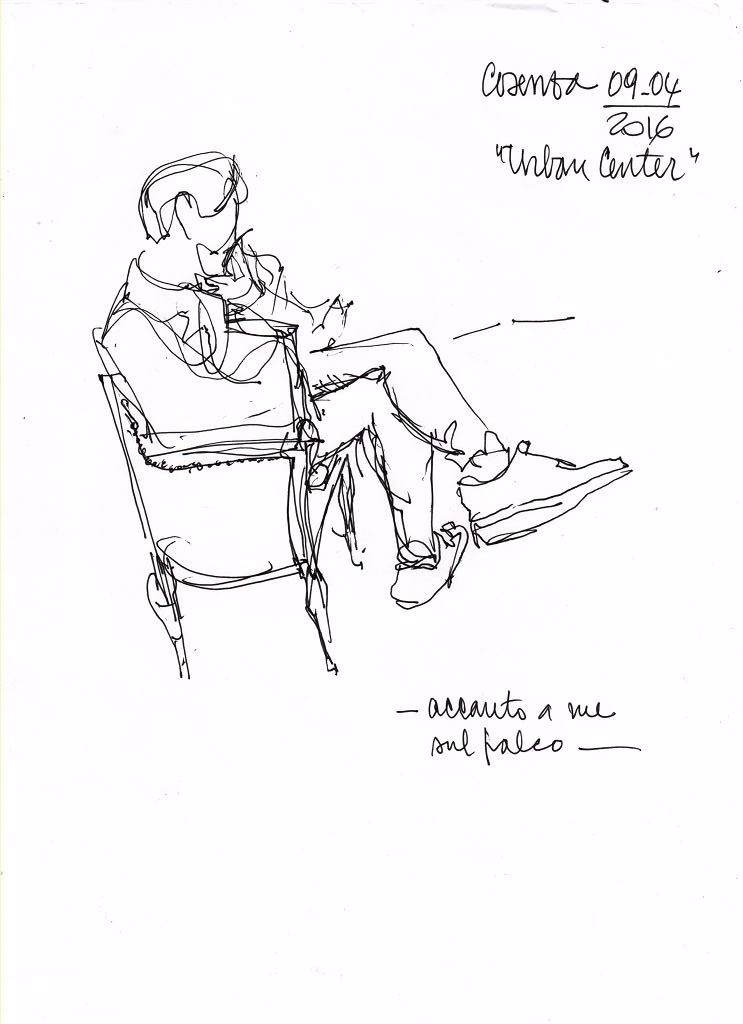 Cosenza 09-04
2016
"Urban Center"
— accanto a me
sul palco —